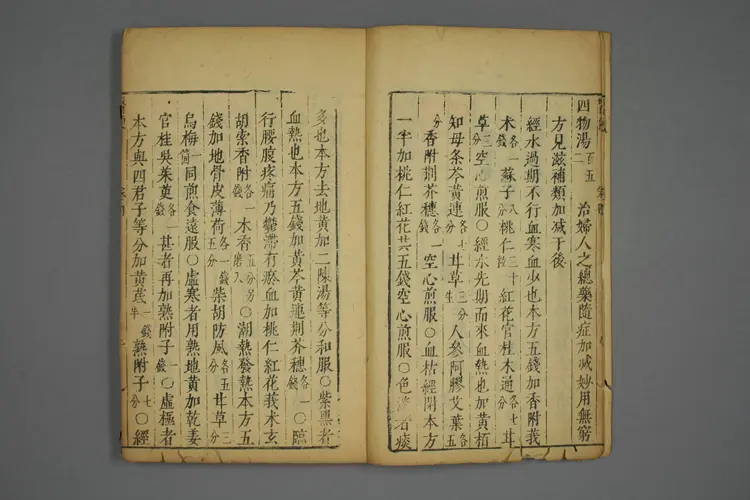 四物湯百五二 治婦人之總藥隨症加减妙用無窮
方見滋補類加减于後
經水過期不行血寒血少也本方五錢加香附莪
木各一錢蘇子八分桃仁三十粒紅花官桂木通各七分甘
草三分空心煎服○經水先期而來血熱也加黄栢
知母条芩黄連各七分甘草三分生人參阿膠艾葉各五
分香附荆芥穗各一錢空心煎服○血枯經閉本方
一半加桃仁紅花共五錢空心煎服○色淡者痰
多也本方去地黄加二陳湯等分和服○紫黑者
血熱也本方五錢加黄芩黄連荆芥穗各一錢○臨
行腰腹疼痛乃鬱滯有瘀血加桃仁紅花莪术玄
胡索香附各一錢木香五分另磨入○潮熱發熱本方五
錢加地骨皮薄荷各一錢五分柴胡防風各五分甘草三分
烏梅一箇同煎食遠服○虚寒者用熟地黄加乾姜
官桂吳茱萸各一錢甚者再加熟附子一錢○虚極者
本方與四君子等分加黄芪一錢半熟附子七分○經